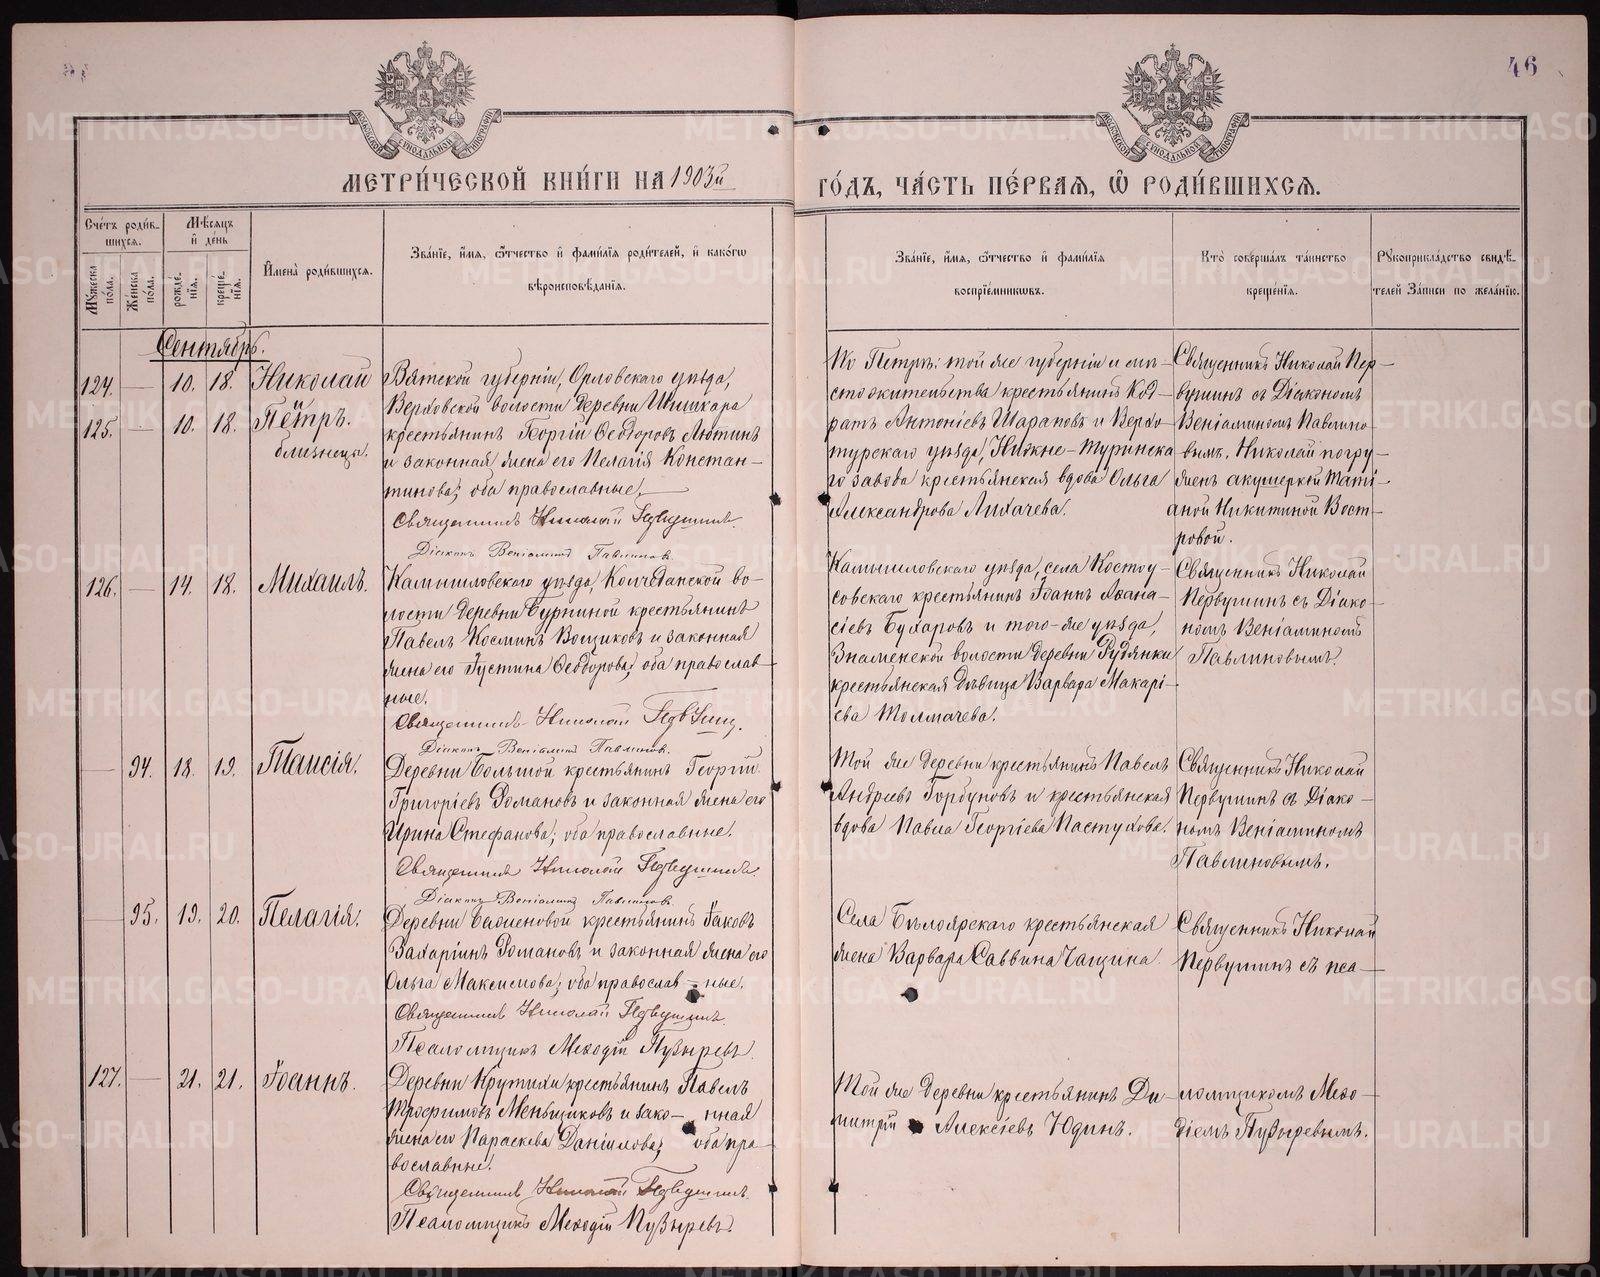 46
МЕТРИ́ЧЕСКОЙ КНИ́ГИ НА 1903й
ГО́ДЪ, ЧА́СТЬ ПЕ́РВАЯ, Ѽ РОДИ́ВШИХСЯ.
Сче́тъ роди́в-
шихся.
Му́жеска по́ла.
Же́нска по́ла.
Мѣ́сяцъ и де́нь
рожде́-
нія.
креще́-
нія.
Имена̀ роди́вшихся.
Зва́ніе, и́мя, ѻ́тчество и фами́лія роди́телей, и како́гѡ
вѣроисповѣ́данія.
Зва́ніе, и́мя, ѻ́тчество и фами́лія
воспріе́мникѡвъ.
Кто̀ соверша́лъ та́инство
креще́нія.
Рꙋкоприкла́дство свидѣ́-
телей за́писи по жела́нію.
Сентябрь.
124 — 10. 18. Николай
и
125. — 10. 18. Петръ.
близнецы.
Вятской губерніи, Орловскаго уѣзда,
Верховской волости деревни Шишкара
крестьянинъ Георгій Ѳеодоровъ Лютинъ
и законная жена его Пелагія Констан-
тинова; оба православные.
Священникъ Николай Первушинъ.
Діаконъ Веніаминъ Павлиновъ.
По Петрѣ: той же губерніи и мѣ-
стожительства крестьянинъ Код-
ратъ Антоніевъ Шараповъ и Верхо-
турскаго уѣзда, Нижне-Туринска-
го завода крестьянская вдова Ольга
Александрова Лихачева.
Священникъ Николай Пер-
вушинъ съ Діакономъ
Веніаминомъ Павлино-
вымъ. Николай погру-
женъ акушеркой Тати-
аной Никитиной Вост-
ровой.
126. — 14. 18. Михаилъ.
Камышловскаго уѣзда, Колчеданской во-
лости деревни Бурниной крестьянинъ
Павелъ Косминъ Вощиковъ и законная
жена его Іустина Ѳеодорова; оба православ-
ные.
Священникъ Николай Первушинъ.
Діаконъ Веніаминъ Павлиновъ.
Камышловскаго уѣзда, села Костоу-
совскаго крестьянинъ Іоаннъ Аѳана-
сіевъ Бухаровъ и того-же уѣзда,
Знаменской волости деревни Рудянки
крестьянская дѣвица Варвара Макарі-
ева Толмачева.
Священникъ Николай
Первушинъ съ Діако-
номъ Веніаминомъ
Павлиновымъ.
— 94. 18. 19. Таисія.
Деревни Большой крестьянинъ Георгій
Григоріевъ Романовъ и законная жена его
Ирина Стефанова; оба православные.
Священникъ Николай Первушинъ.
Діаконъ Веніаминъ Павлиновъ.
Той же деревни крестьянинъ Павелъ
Андреевъ Горбуновъ и крестьянская
вдова Павла Георгіева Пастухова.
Священникъ Николай
Первушинъ съ Діако-
номъ Веніаминомъ
Павлиновымъ.
— 95. 19. 20. Пелагія.
Деревни Баженовой крестьянинъ Іаковъ
Захаріинъ Романовъ и законная жена его
Ольга Максимова; оба православ-ные.
Священникъ Николай Первушинъ.
Псаломщикъ Меѳодій Пузыревъ.
Села Бѣлоярскаго крестьянская
жена Варвара Саввина Чащина.
Священникъ Николай
Первушинъ съ пса-
127. — 21. 21. Іоаннъ.
Деревни Крутихи крестьянинъ Павелъ
Трофимовъ Меньщиковъ и зако-нная
жена его Параскева Даніилова; оба пра-
вославные.
Священникъ Николай Первушинъ.
Псаломщикъ Меѳодій Пузыревъ.
Той же деревни крестьянинъ Ди-
митрій Алексіевъ Юдинъ.
ломщикомъ Меѳо-
діемъ Пузыревымъ.
METRIKI.GASO-URAL.RU